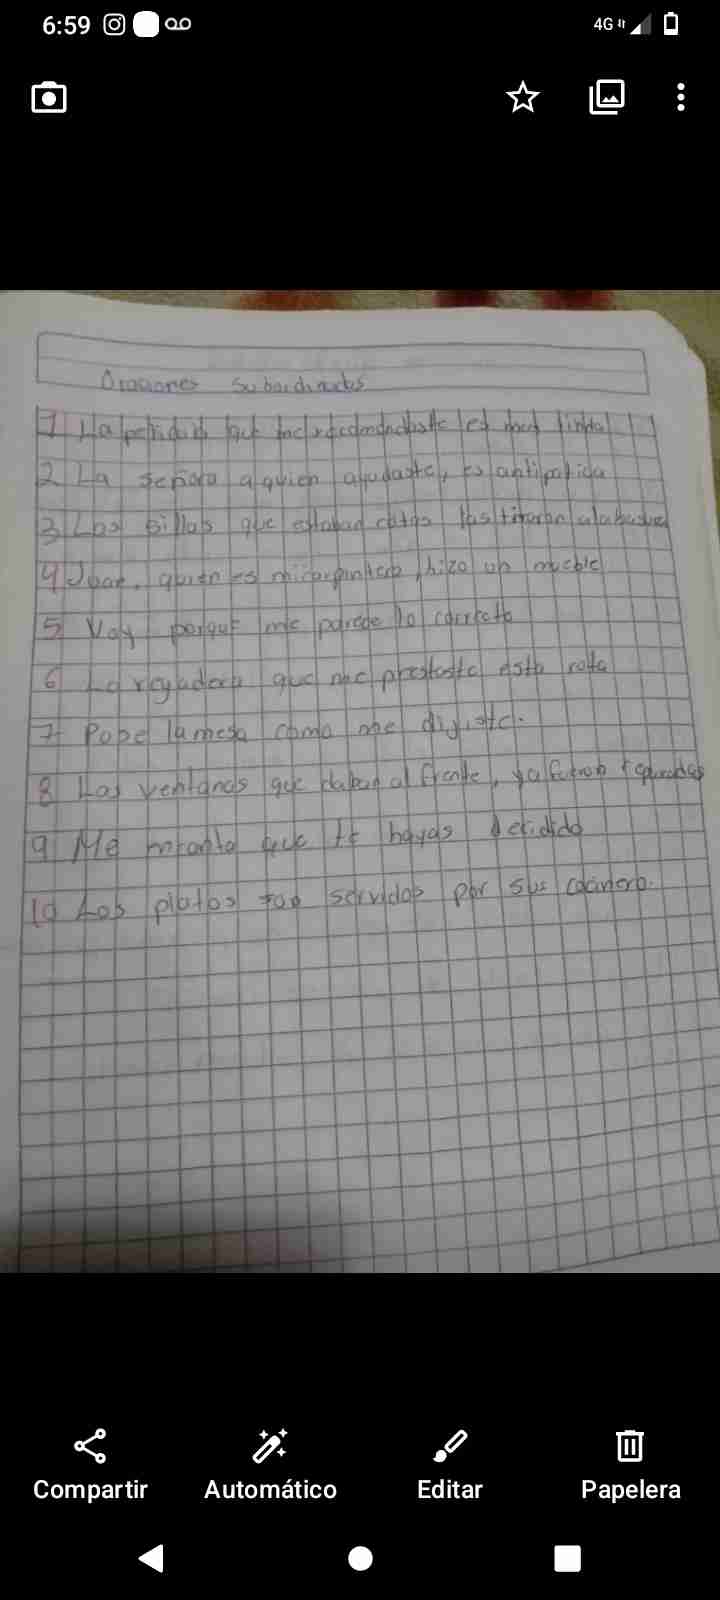 6:59
4G
Oraciones Subordinadas
1 La que me recomendaste es muy linda
2 La señora a quien ayudaste, es antipatica
3 Las sillas que estaban rotas las tiraron ala basura
4 Juan, quien es mi carpintero, hizo un mueble
5 Voy porque me parece lo correcto
6 La regadera que me prestaste esta rota
7 Pobe la mesa como me dijiste.
8 Las ventanas que daban al frente, ya fueron reparadas
9 Me encanta que te hayas decidido
10 Los platos son servidos por sus cocinero.
Compartir
Automático
Editar
Papelera